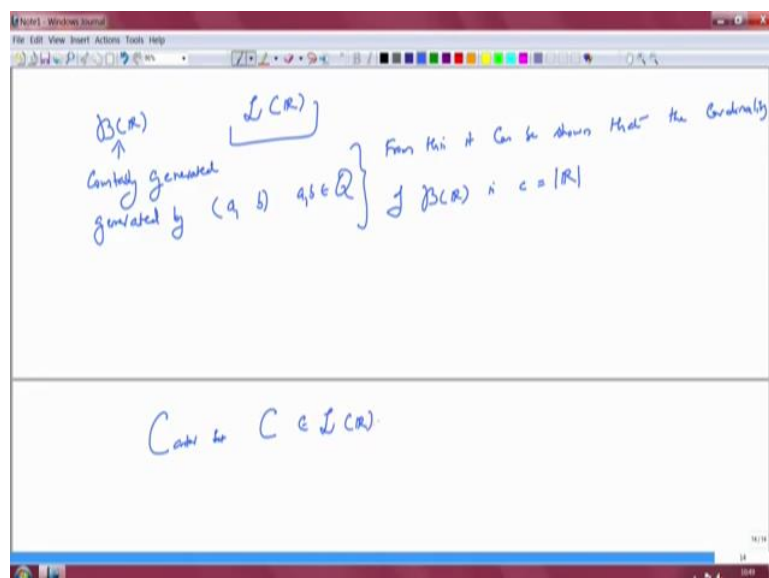 Note1 - Windows Journal
File Edit View Insert Actions Tools Help
B(R) L(R)
↑
Countably generated
generated by (a, b) a,b ∈ Q } From this it can be shown that the Cardinality
of B(R) is c = |R|
Cantor set C ∈ L(R).
14/14
14
10:49